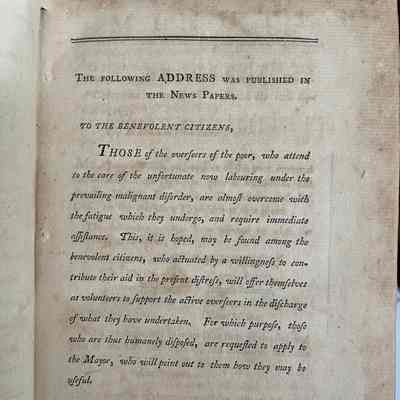 THE FOLLOWING ADDRESS WAS PUBLISHED IN
THE NEWS PAPERS.
TO THE BENEVOLENT CITIZENS,
THOSE of the overſeers of the poor, who attend
to the care of the unfortunate now labouring under the
prevailing malignant diſorder, are almoſt overcome with
the fatigue which they undergo, and require immediate
aſſiſtance. This, it is hoped, may be found among the
benevolent citizens, who actuated by a willingneſs to con-
tribute their aid in the preſent diſtreſs, will offer themſelves
as volunteers to ſupport the active overſeers in the diſcharge
of what they have undertaken. For which purpoſe, thoſe
who are thus humanely diſpoſed, are requeſted to apply to
the Mayor, who will point out to them how they may be
uſeful.